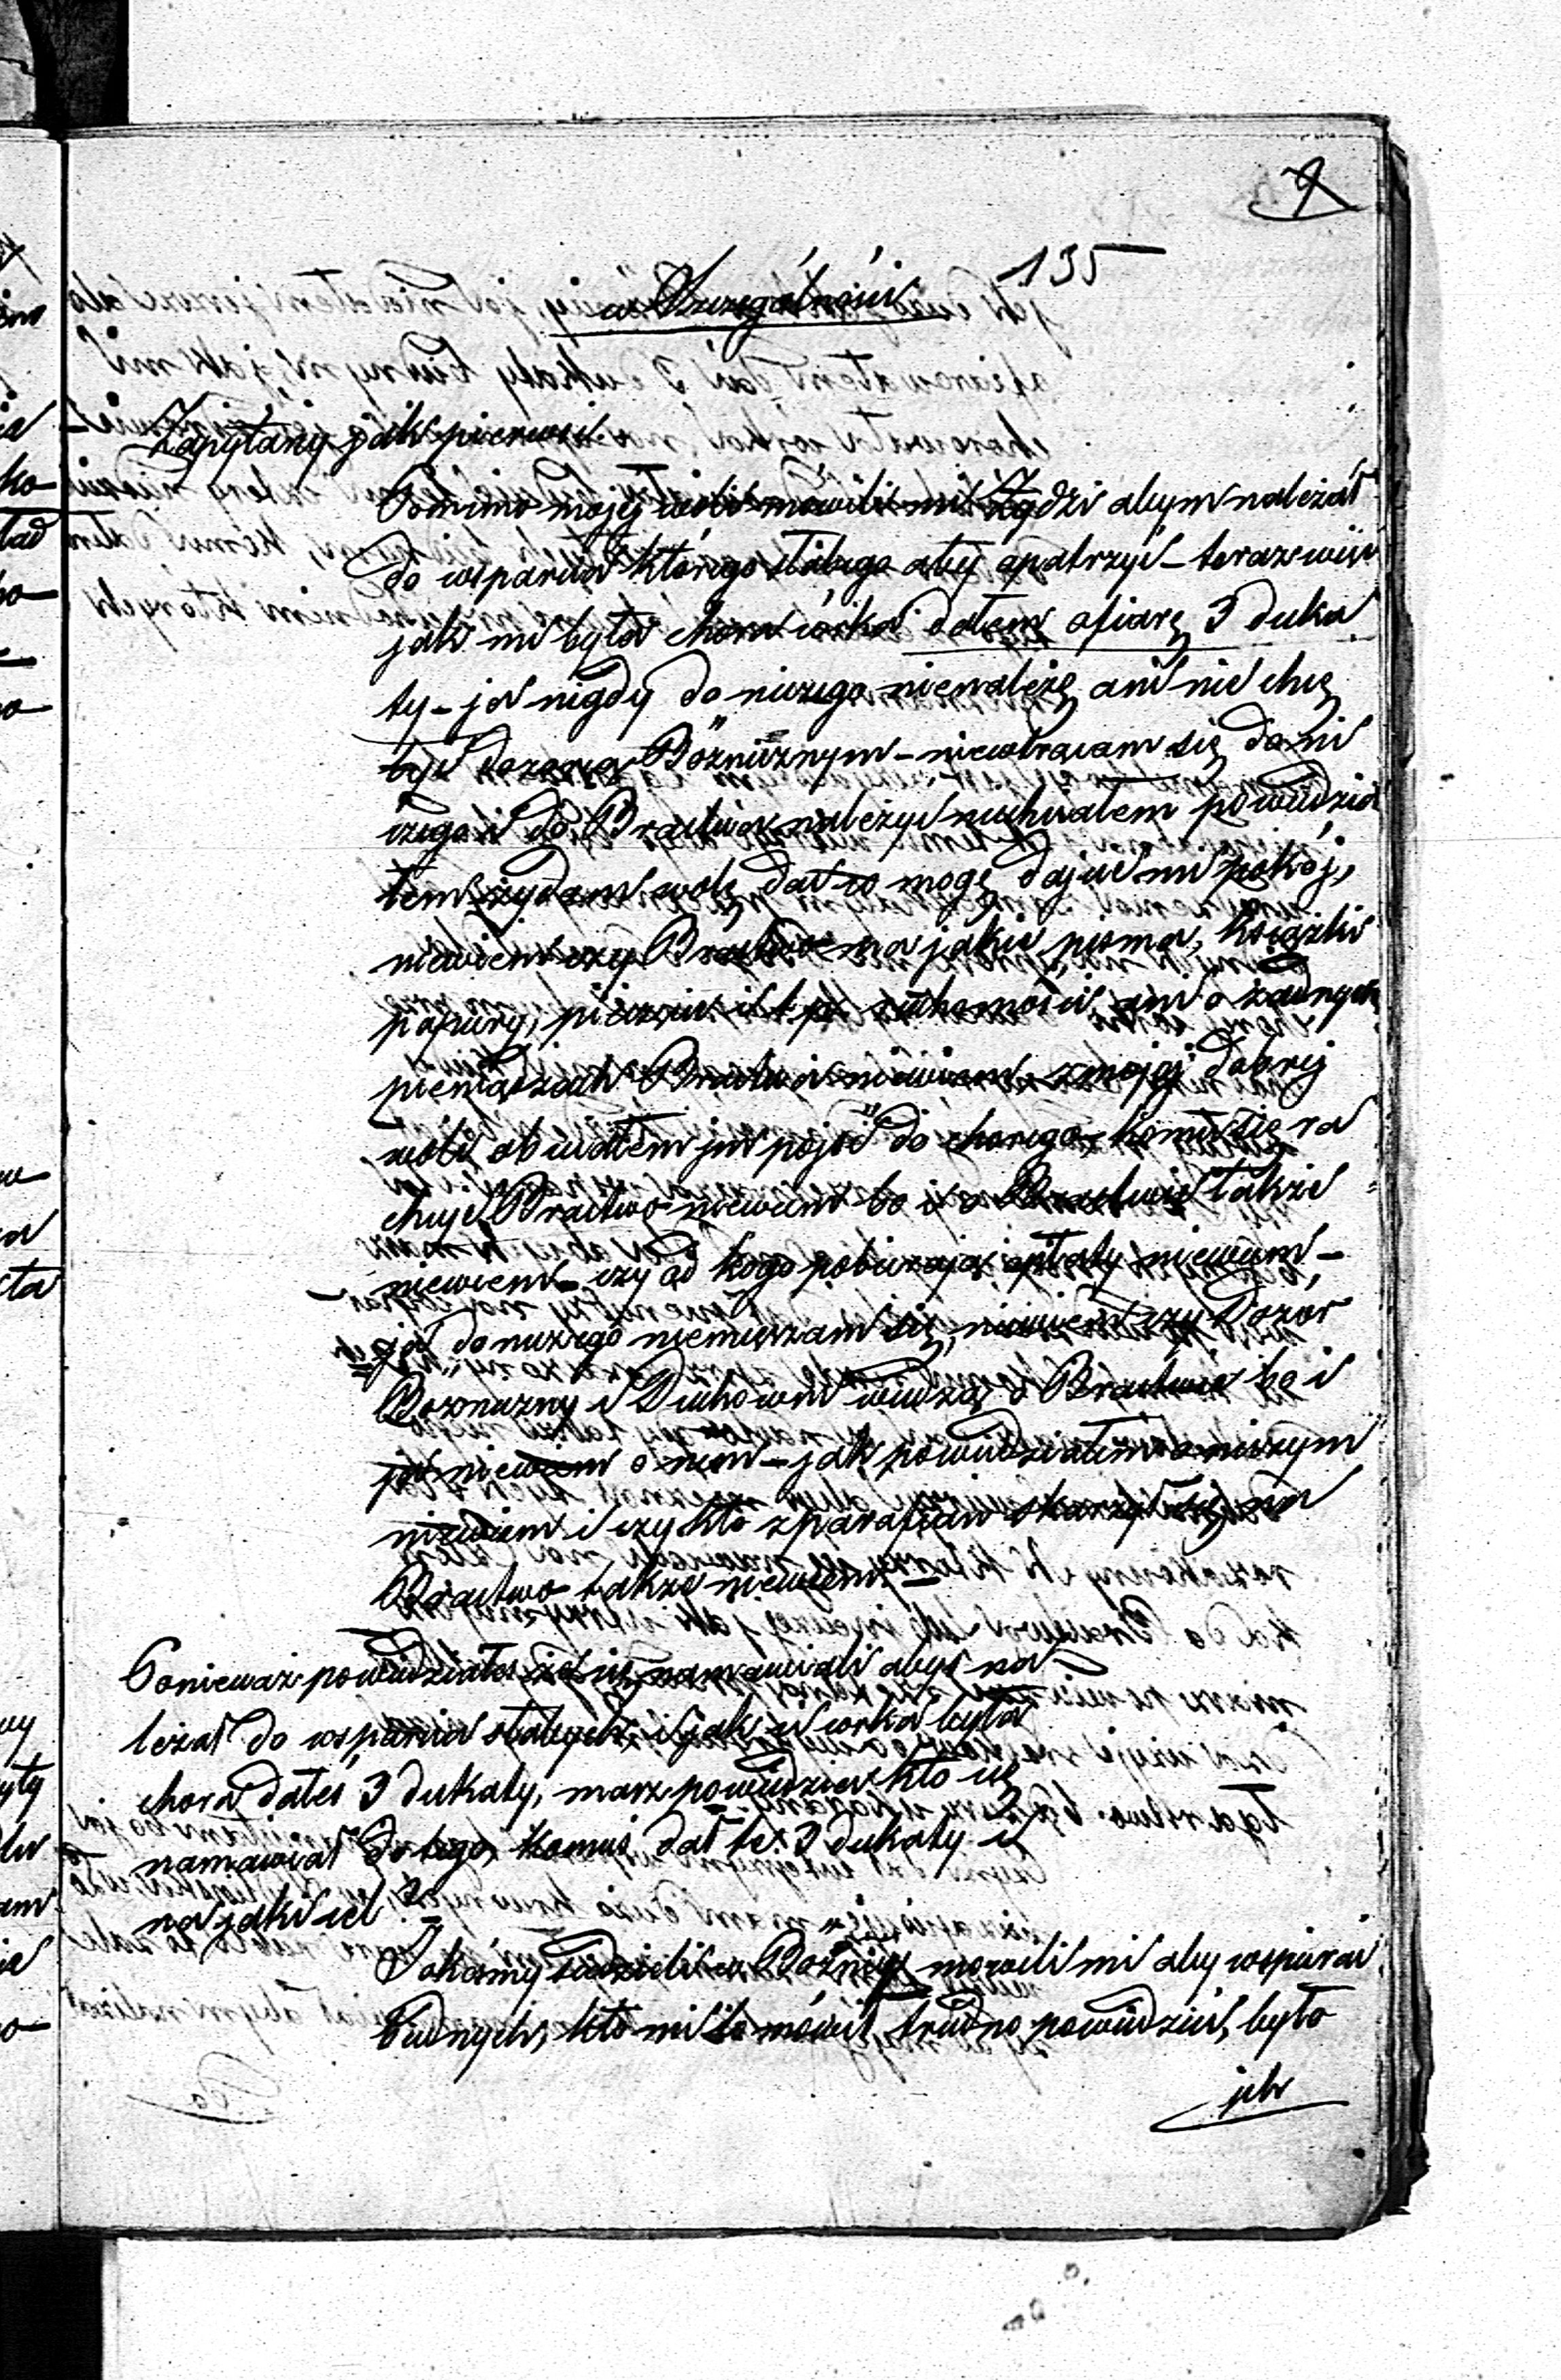 135
w Szczególności
Zapytany jak pierwsi
Pomimo mojej woli mówili mi Żydzi abym należał
do wsparcia którego słabego aby opatrzyć – teraz wiem
jak mi była chora córka dałem ofiarę 3 duka
ty – ja nigdy do niczego nienależę ani nie chcę
być dozorcą Bożnicznym – niewtrącam się do ni
czego i do Bractwa należyć niechciałem powiedzia
łem żydom wolę dać co mogę dajcie mi pokój,
niewiem czy Bractwo ma jakie pisma, książki
papiery, pieczęcie i t.p. ruchomości, ani o żadnych
pieniądzach Bractwa niewiem – z mojej dobrej
woli obiecałem im pojść do chorego – komu się ra
chuje Bractwo niewiem bo i o Bractwie także
niewiem – czy od kogo pobierają opłaty niewiem –
ja do niczego niemieszam się, niewiem czy Dozór
Bozniczny i Duchowni wiedzą o Bractwie bo i
ja niewiem o niem – jak powiedziałem o niczym
niewiem i czy kto z parafian skarżył się na
Bractwo także niewiem –
Ponieważ powiedziałeś że cię namawiali abyś na
leżał do wsparcia słabych, i jak ci córka była
chora dałeś 3 dukaty, masz powiedzieć kto cię
namawiał do tego, komuś dał te 3 dukaty i
na jaki cel?
Jakeśmy siedzieli w Bożnicy mówili mi aby wspierać
biednych, kto mi to mówił, trudno powiedzieć, było
ich